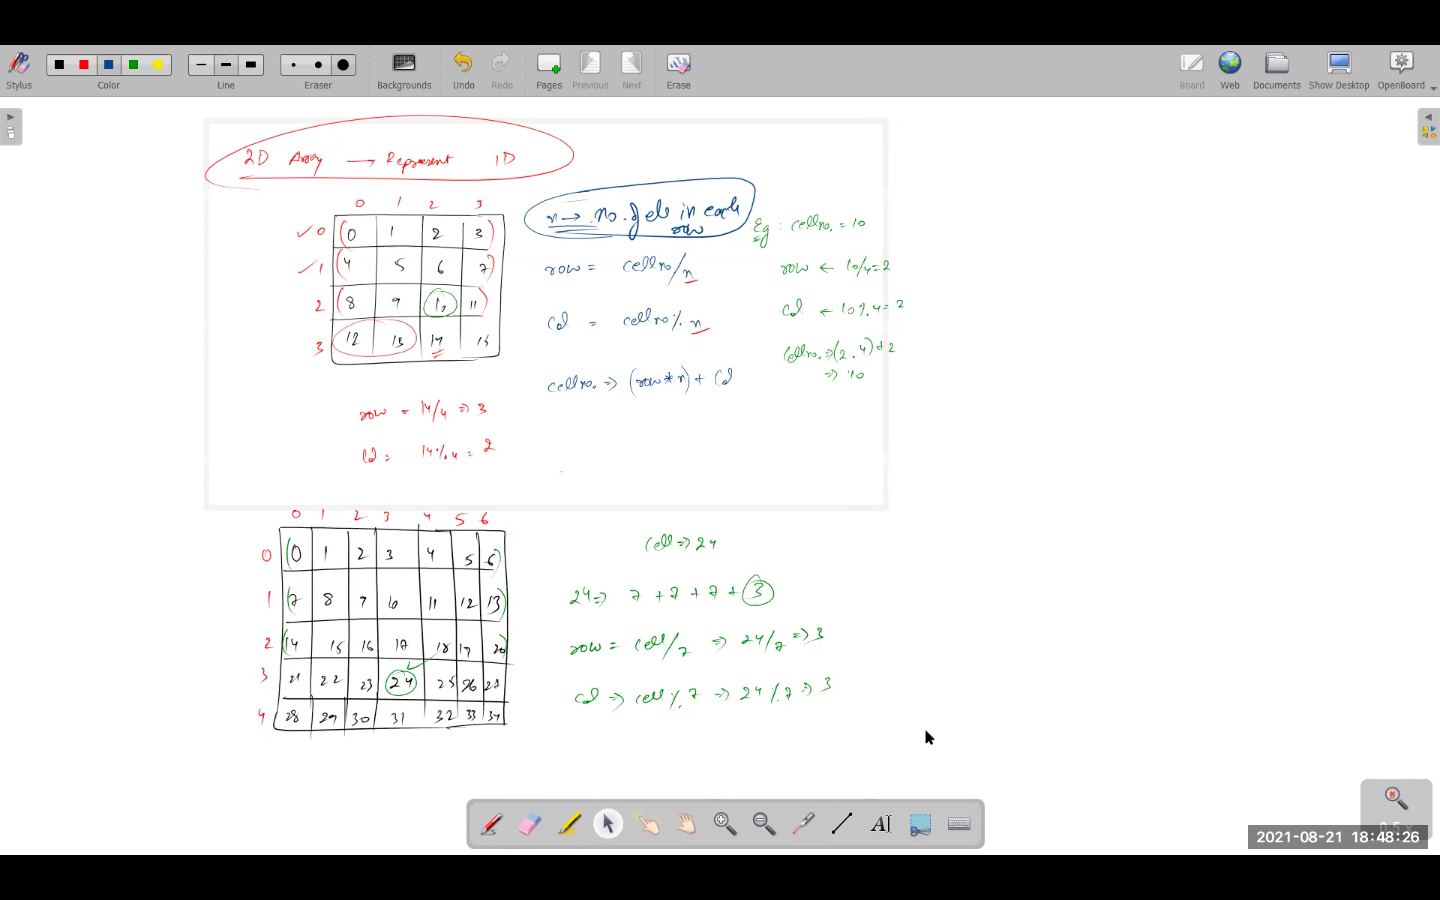 Stylus Color Line Eraser Backgrounds Undo Redo Pages Previous Next Erase Board Web Documents Show Desktop OpenBoard
2D Array → Represent 1D
0 1 2 3
0 0 1 2 3
1 4 5 6 7
2 8 9 10 11
3 12 13 14 15
row = 14/4 => 3
Col = 14%4 = 2
n → no. of els in each
row
row = cellno/n
Col = cellno% n
cellno. => (row*n) + Col
Eg : cellno. = 10
row ← 10/4=2
Col ← 10%4=2
Cellno. => (2*4)+2
=> 10
0 1 2 3 4 5 6
0 0 1 2 3 4 5 6
1 7 8 9 10 11 12 13
2 14 15 16 17 18 19 20
3 21 22 23 24 25 26 27
4 28 29 30 31 32 33 34
Cell => 24
24 => 7 + 7 + 7 + 3
row = cell/7 => 24/7 => 3
Col => cell%7 => 24%7 => 3
2021-08-21 18:48:26